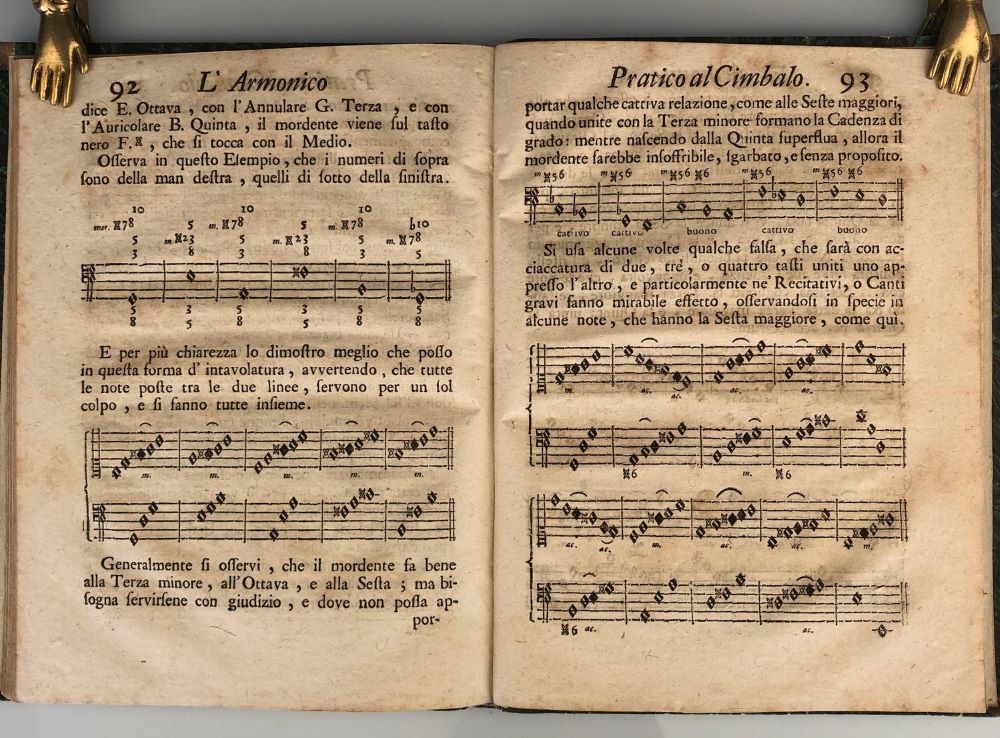 92 L'Armonico
dice E. Ottava, con l'Annulare G. Terza, e con
l'Auricolare B. Quinta, il mordente viene ſul taſto
nero F.♯, che ſi tocca con il Medio.
Oſſerva in queſto Eſempio, che i numeri di ſopra
ſono della man deſtra, quelli di ſotto della ſiniſtra.
10 10 10
mor. ♯78 5 m. ♯78 5 m. ♯78 b10
5 m. ♯23 5 m. ♯23 5 m. ♯78
3 8 3 8 3 8 5
5 3 5 3 5 3 5
8 5 8 5 8 5 8
E per più chiarezza lo dimoſtro meglio che poſſo
in queſta forma d'intavolatura, avvertendo, che tutte
le note poſte tra le due linee, ſervono per un ſol
colpo, e ſi fanno tutte inſieme.
m. m. m. m. m.
Generalmente ſi oſſervi, che il mordente fa bene
alla Terza minore, all'Ottava, e alla Seſta; ma bi-
ſogna ſervirſene con giudizio, e dove non poſſa ap-
por-
Pratico al Cimbalo. 93
portar qualche cattiva relazione, come alle Seſte maggiori,
quando unite con la Terza minore formano la Cadenza di
grado: mentre naſcendo dalla Quinta ſuperflua, allora il
mordente ſarebbe inſoffribile, ſgarbato, e ſenza propoſito.
m ♯56 m ♯56 m ♯56 ♯6 m ♯56 m ♯56 ♯6
cattivo cattivo buono cattivo buono
Si uſa alcune volte qualche falſa, che ſarà con ac-
ciaccatura di due, trè, o quattro taſti uniti uno ap-
preſſo l'altro, e particolarmente ne' Recitativi, o Canti
gravi fanno mirabile effetto, oſſervandoſi in ſpecie in
alcune note, che hanno la Seſta maggiore, come quì.
m. ac. ac. ac.
♯6 m. ♯6
ac. ac. m. ac. ac. m.
♯6 ac. ac.